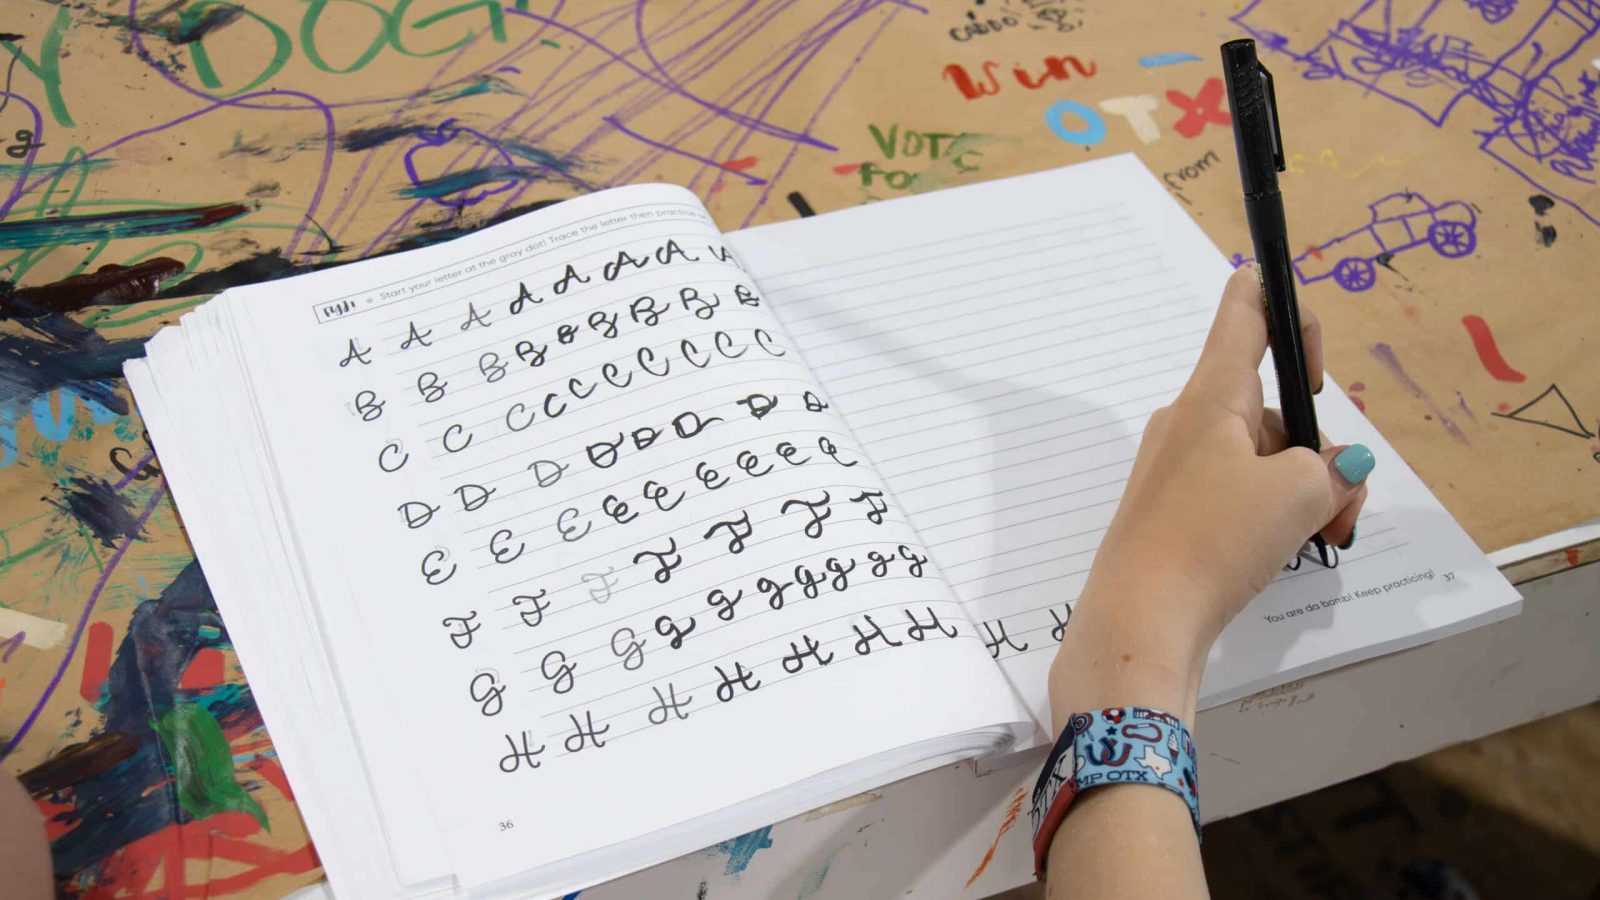 Y DOG!
Win
OTX
VOTE
FO
from
= Start your letter at the gray dot! Trace the letter then practice
A A A A A A A A
B B B B B B B B B
C C C C C C C C C C
D D D D D D D D
E E E E E E E E E
F F F F F F F
G G G G G G G G G G
H H H H H H H
36
H H
You are da bomb! Keep practicing! 37
MP OTX
TX